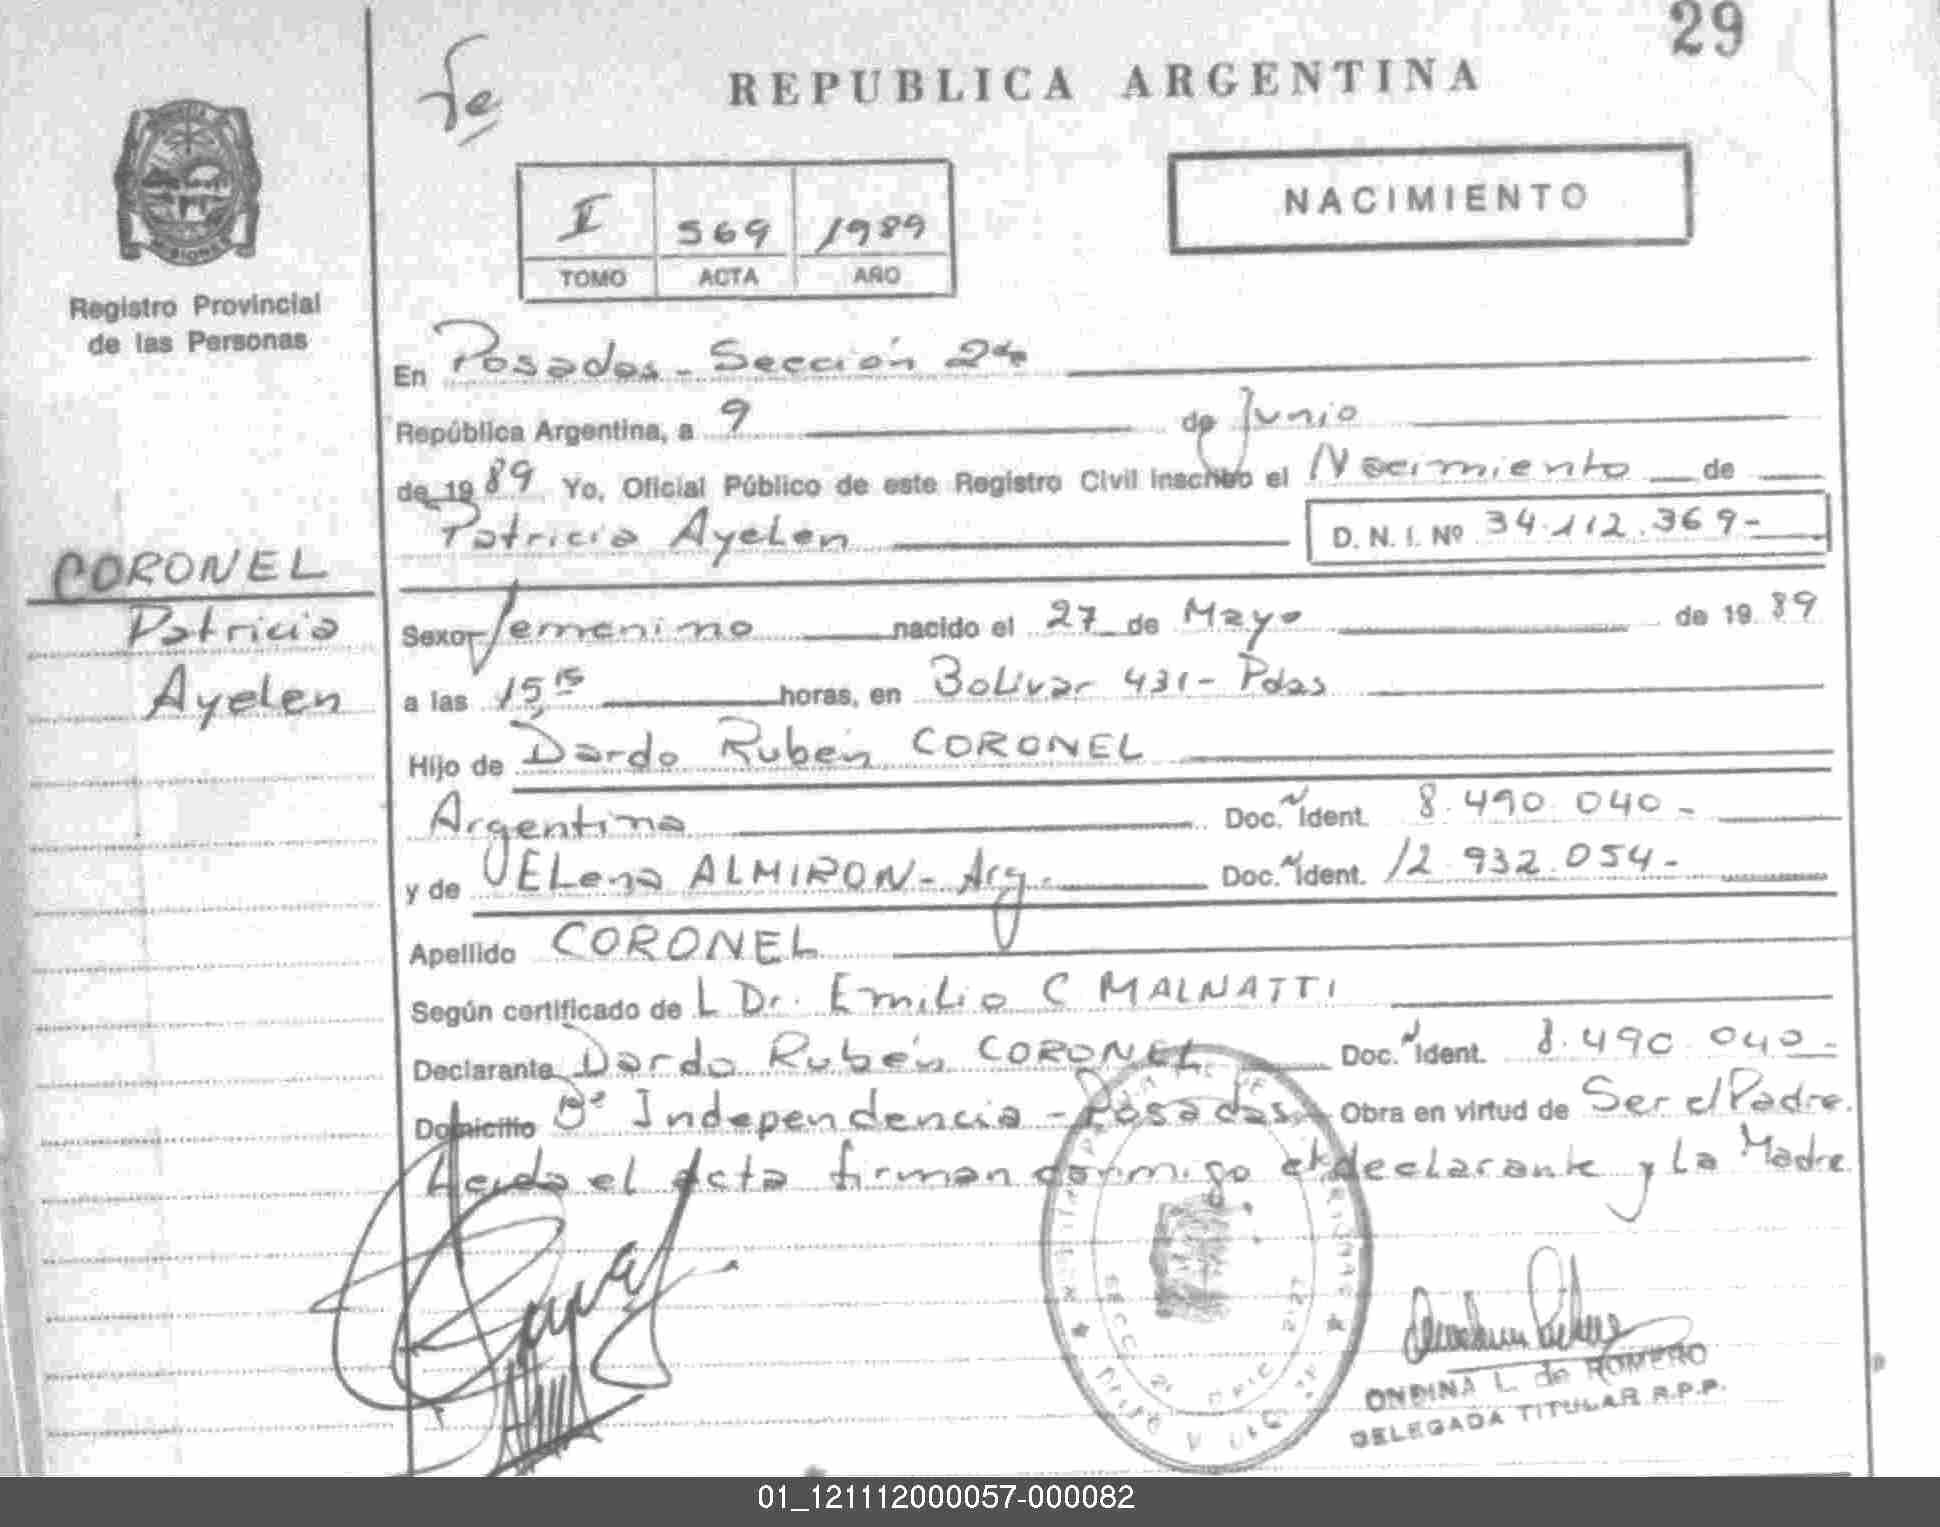 29
Fe
REPUBLICA ARGENTINA
NACIMIENTO
I 569 1989
TOMO ACTA AÑO
Registro Provincial
de las Personas
En Posadas - Sección 2da
República Argentina, a 9 de Junio
de 1989 Yo, Oficial Público de este Registro Civil inscribo el Nacimiento de
Patricia Ayelen D. N. I. Nº 34.112.369-
CORONEL
Patricia
Ayelen
Sexo femenino nacido el 27 de Mayo de 1989
a las 15,15 horas, en Bolivar 431- Pdas
Hijo de Dardo Rubén CORONEL
Argentina Doc. Ident. 8.490.040-
y de ELena ALMIRON - Arg. Doc. Ident. 12.932.054-
Apellido CORONEL
Según certificado de L Dr. Emilio C MALNATTI
Declarante Dardo Rubén CORONEL Doc. Ident. 8.490.040-
Domicilio Bº Independencia - Posadas Obra en virtud de Ser el Padre.
Leida el Acta firman conmigo el declarante y La Madre
ONDINA L. de ROMERO
DELEGADA TITULAR R.P.P.
01_121112000057-000082